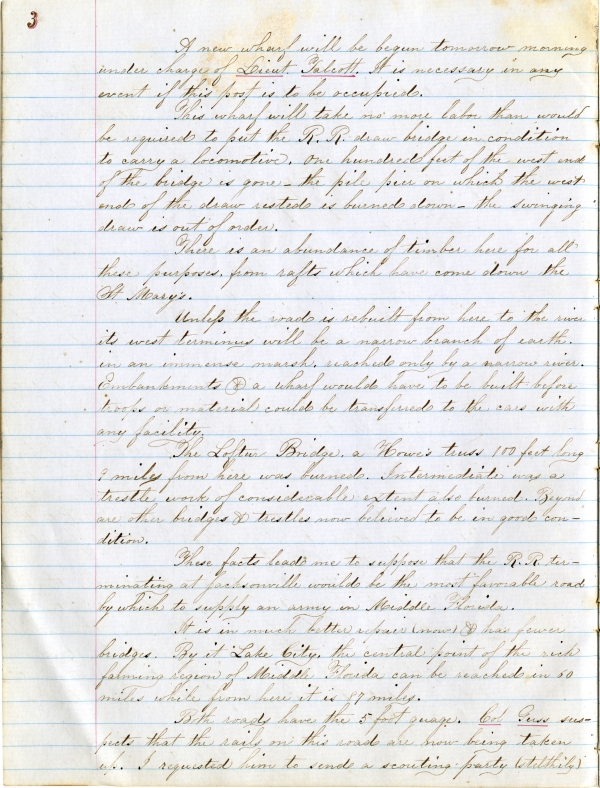 3
A new wharf will be begun tomorrow morning
under charge of Lieut. Talcott. It is necessary in any
event if this post is to be occupied.
This wharf will take no more labor than would
be required to put the R.R. draw bridge in condition
to carry a locomotive. One hundred feet of the west end
of the bridge is gone – the pile pier on which the west
end of the draw rested is burned down – the swinging
draw is out of order.
There is an abundance of timber here for all
these purposes, from rafts which have come down the
St. Mary's.
Unless the road is rebuilt from here to the river
its west terminus will be a narrow branch of earth
in an immense marsh, reached only by a narrow river.
Embankments & a wharf would have to be built before
troops or material could be transferred to the cars with
any facility.
The Loftur Bridge, a Howe's truss 100 feet long
9 miles from here was burned. Intermediate was a
trestle work of considerable extent also burned. Beyond
are other bridges & trestles now believed to be in good con-
dition.
These facts lead me to suppose that the R.R. ter-
minating at Jacksonville would be the most favorable road
by which to supply an army in Middle Florida.
It is in much better repair (now) & has fewer
bridges. By it Lake City, the central point of the rich
farming region of Middle Florida can be reached in 60
miles while from here it is 87 miles.
Both roads have the 5 foot guage. Col. Guss sus-
pects that the rails on this road are now being taken
up. I requested him to send a scouting party (stelthily)